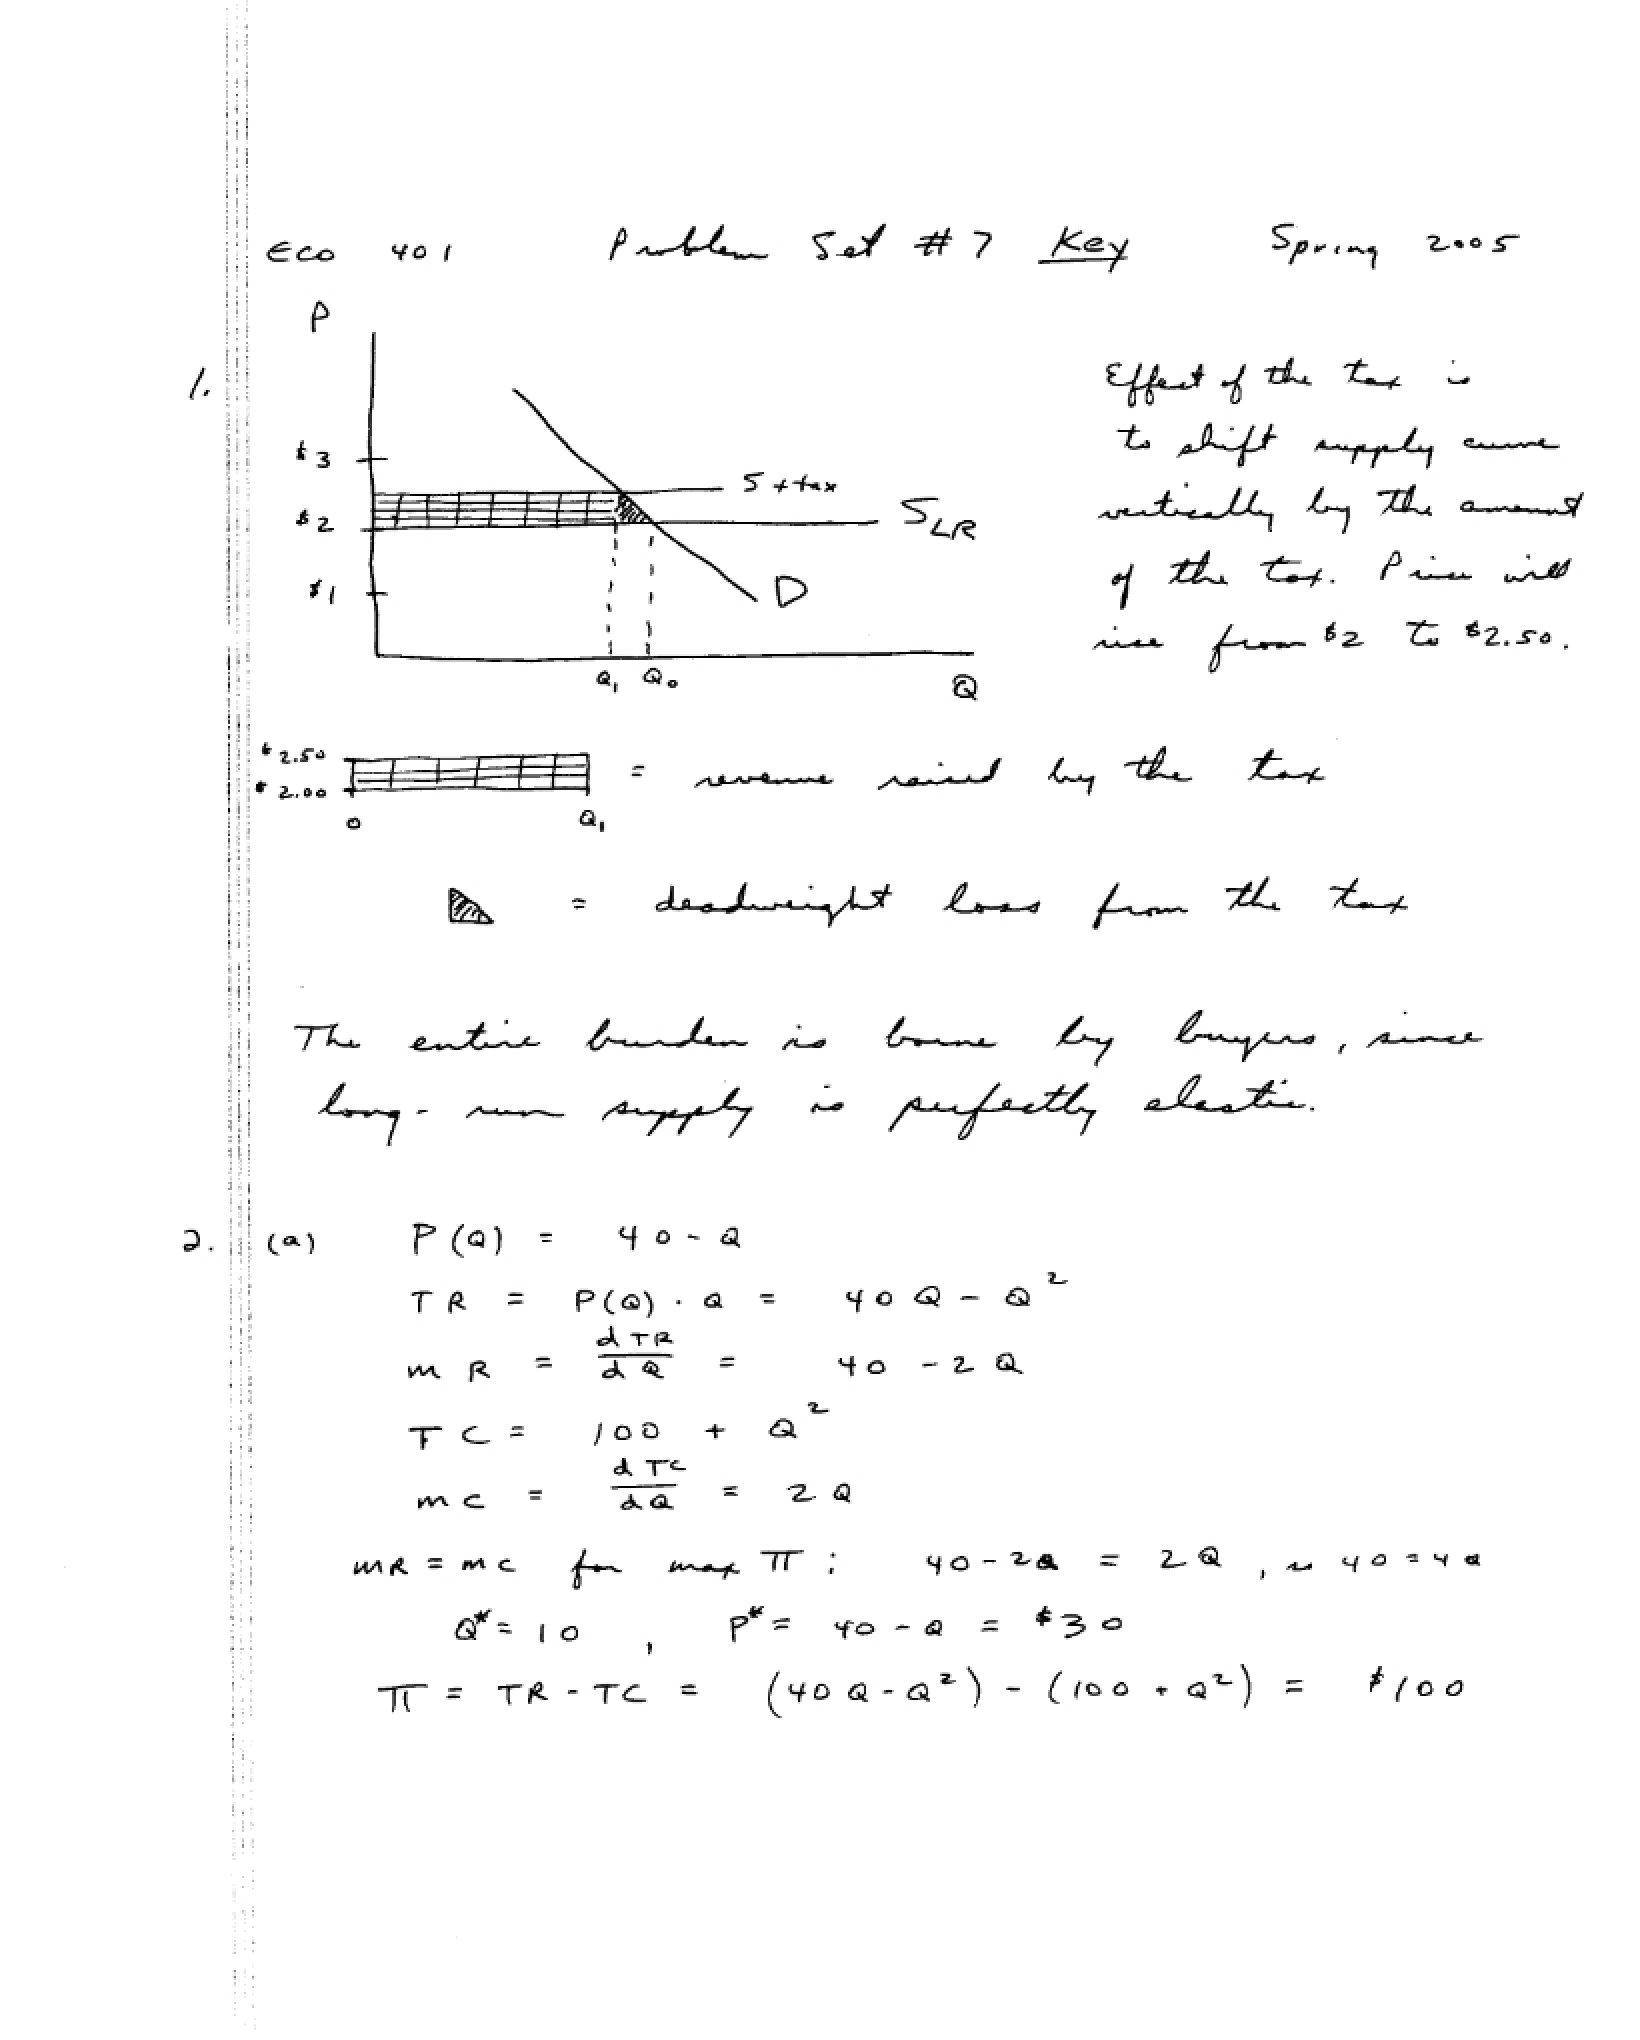 ECO 401 Problem Set #7 Key Spring 2005
P
1.
$3
$2
$1
S+tax
S_LR
D
Q₁ Q₀
Q
Effect of the tax is
to shift supply curve
vertically by the amount
of the tax. Price will
rise from $2 to $2.50.
$2.50
$2.00
0 Q₁
= revenue raised by the tax
= deadweight loss from the tax
The entire burden is borne by buyers, since
long-run supply is perfectly elastic.
2. (a) P(Q) = 40 - Q
TR = P(Q) · Q = 40Q - Q²
MR = dTR/dQ = 40 - 2Q
TC = 100 + Q²
MC = dTC/dQ = 2Q
MR = MC for max π : 40 - 2Q = 2Q, so 40 = 4Q
Q* = 10, P* = 40 - Q = $30
π = TR - TC = (40Q - Q²) - (100 + Q²) = $100